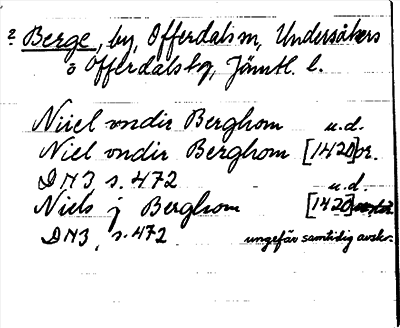 ? Berge, by, Offerdals sn, Undersåkers
o Offerdals tg, Jämtl. l.
Niiel vndir Berghom u.d.
Niel vndir Berghom [1420] or.
DN3 s. 472 u.d.
Niels j Berghom [1420]
DN3, s. 472 ungefär samtidig avskr.